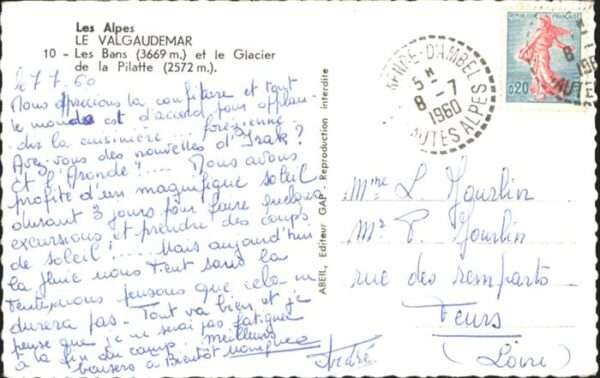 Les Alpes
LE VALGAUDEMAR
10 - Les Bans (3669 m.) et le Glacier
de la Pilatte (2572 m.).
le 7.7.60
Nous apprécions la confiture et tout
le monde est d'accord pour applau-
dir la cuisinière .... forézienne
Avez-vous des nouvelles d'Isak?
Et l'Aronde! .... Nous avons
profité d'un magnifique soleil
durant 3 jours pour faire quelques
excursions et prendre des coups
de soleil! .... Mais aujourd'hui
la pluie nous tient sous la
tente, nous pensons que cela ne
durera pas - Tout va bien et je
pense que je ne serai pas fatiguée
à la fin du camp. Meilleurs
baisers à bientôt Monique
André
ABEIL, Editeur GAP - Reproduction interdite
D'AMBEL
5 H
8 - 7
1960
HAUTES ALPES
FRANÇAISE
0,20
8
1960
Mme L. Gourlin
Mr P. Gourlin
rue des remparts
Feurs
(Loire)